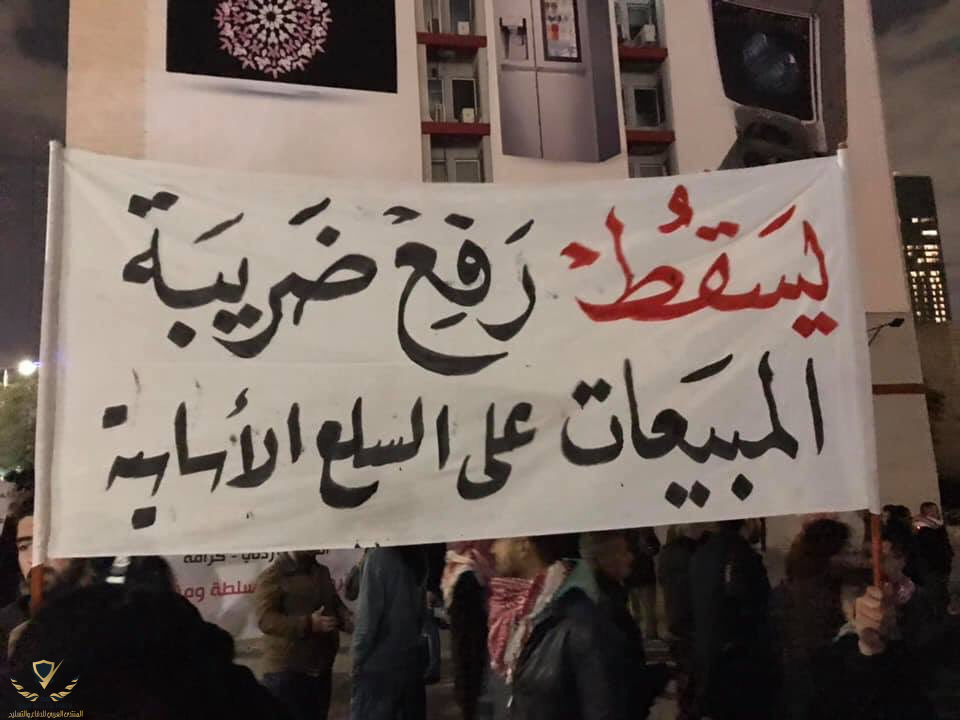 يسقُط رَفعْ ضَريبَة
المبيَعات على السلع الأساسية
ردني - كرامة
سلطة وم
المنتدى العربي للدفاع والتسليح